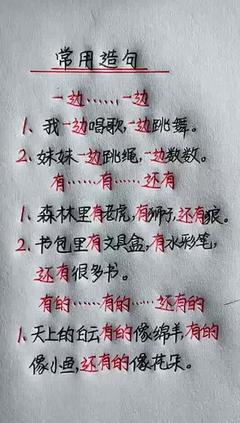 常用造句
一边……一边
1、我一边唱歌,一边跳舞。
2、妹妹一边跳绳,一边数数。
有……有……还有
1、森林里有老虎,有狮子,还有狼。
2、书包里有文具盒,有水彩笔,
还有很多书。
有的……有的……还有的
1、天上的白云有的像绵羊,有的
像小鱼,还有的像花朵。